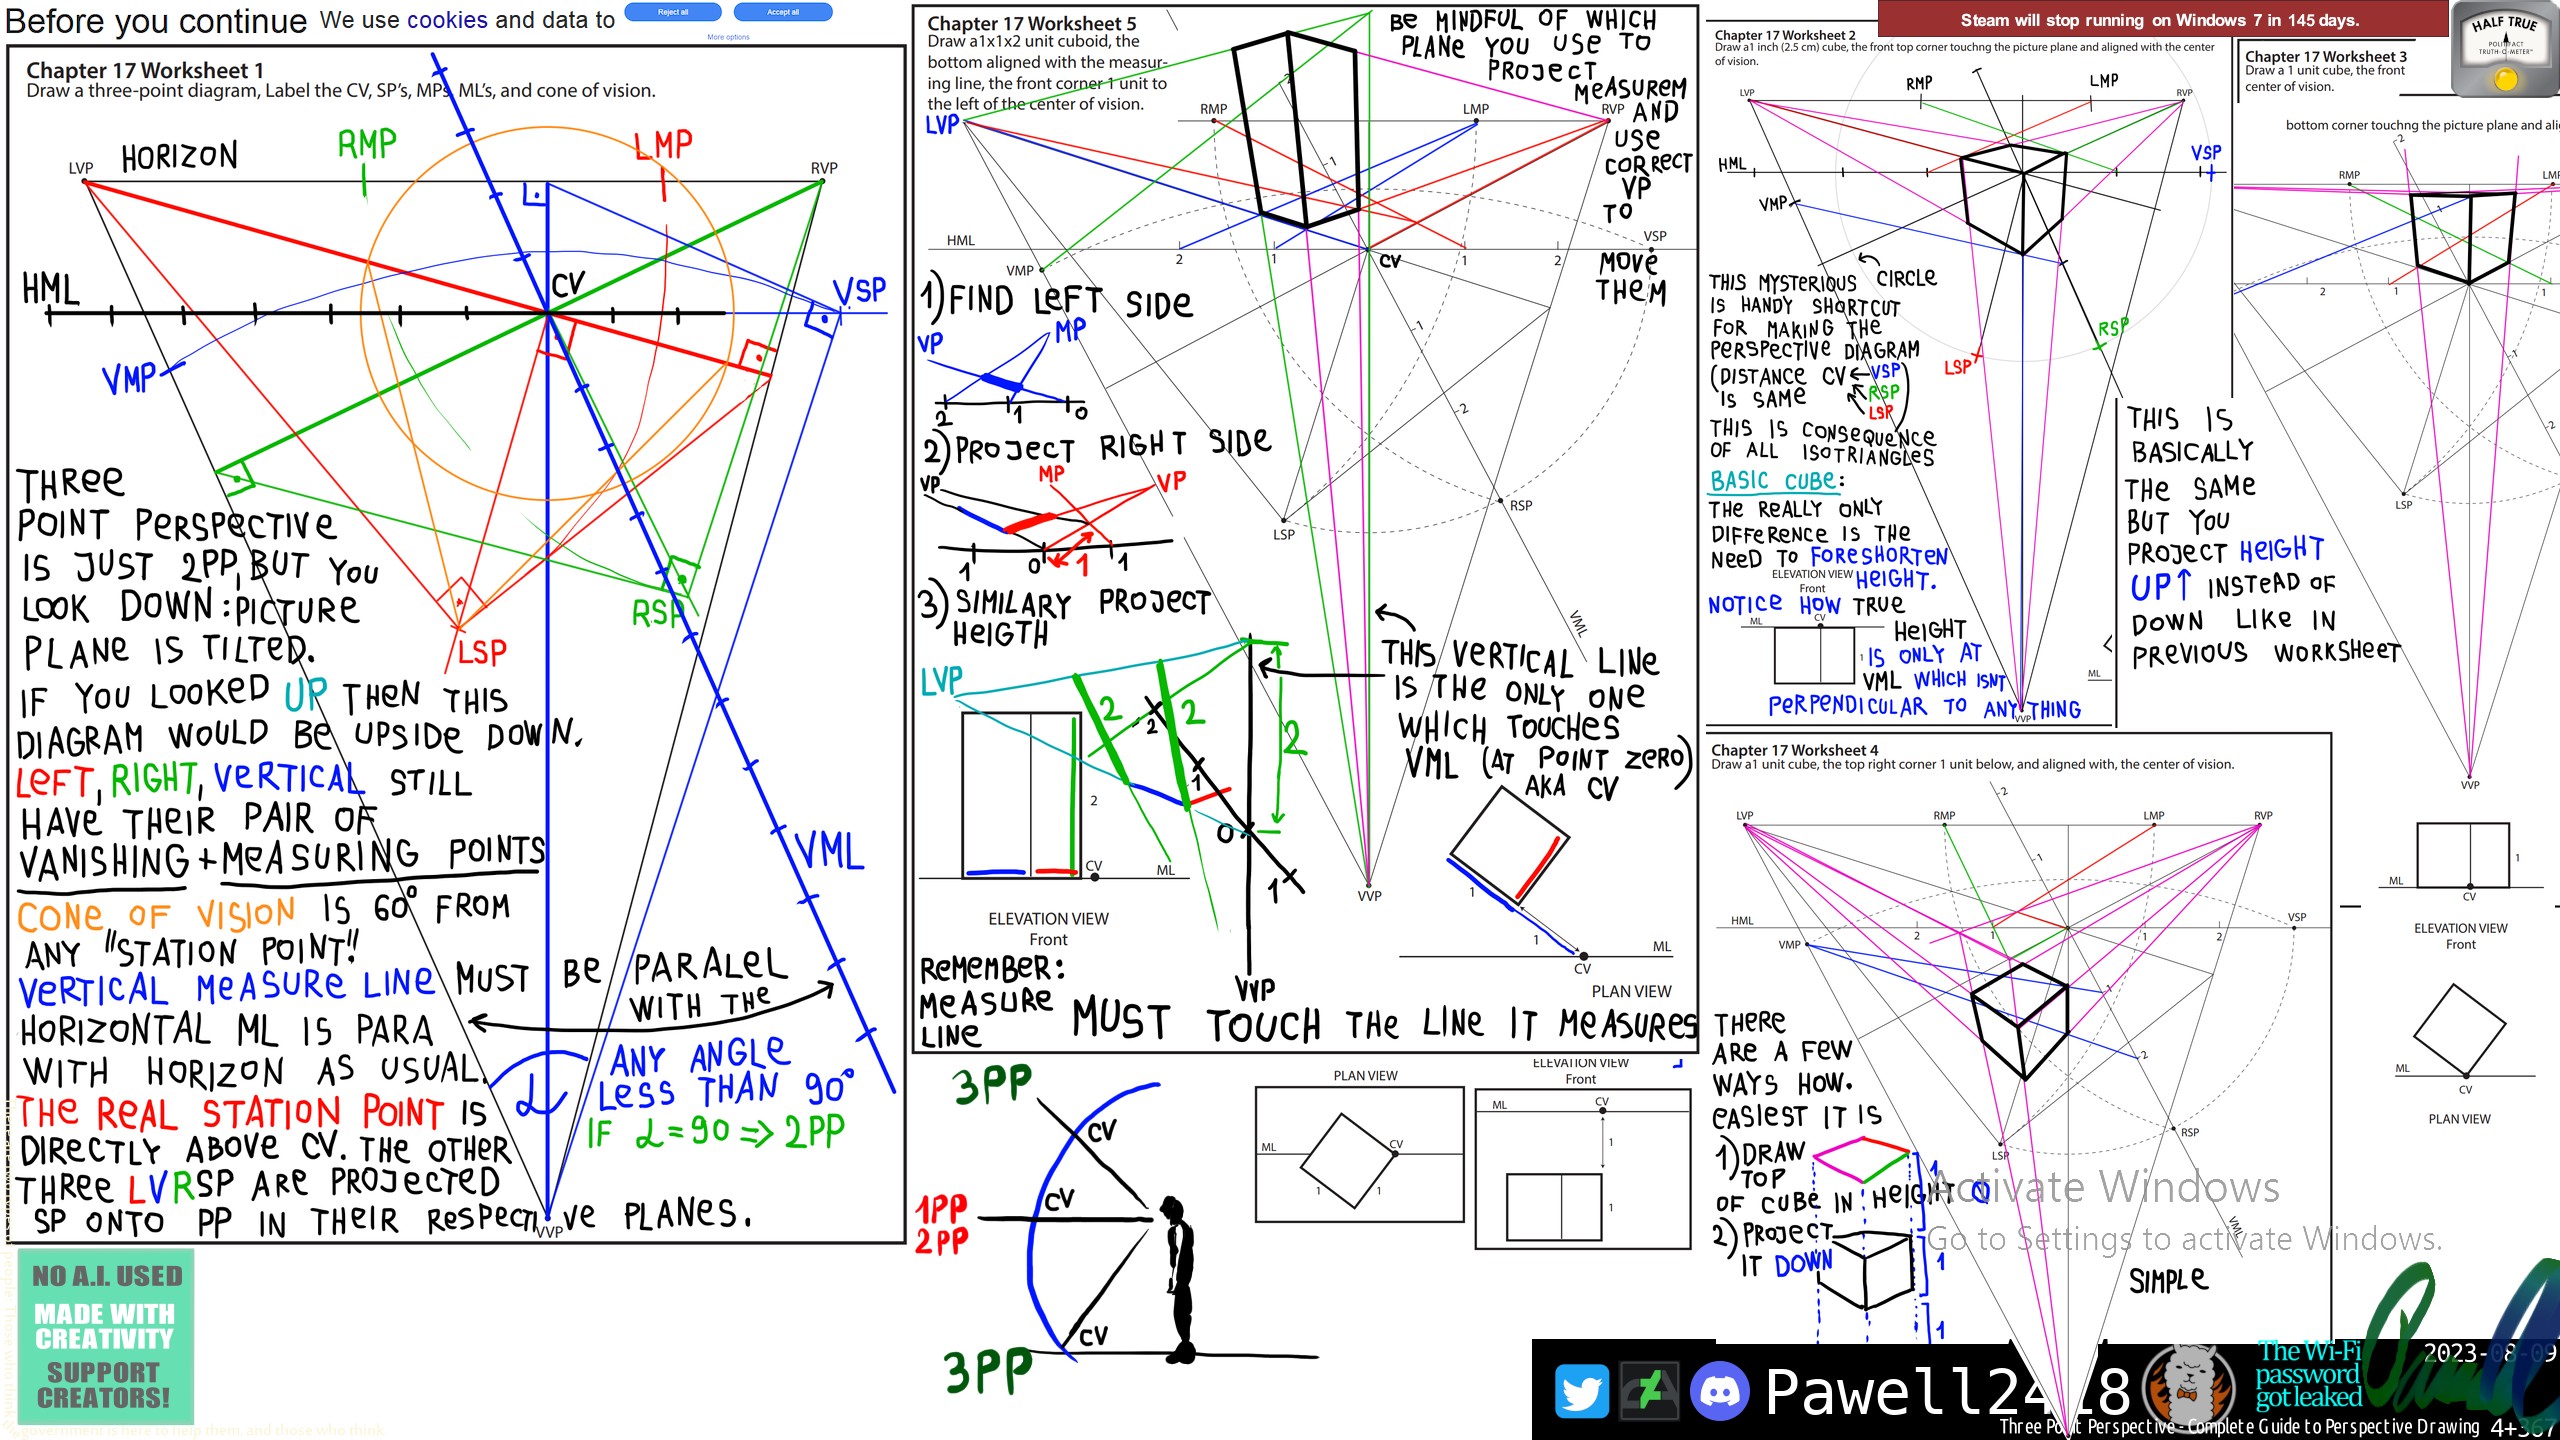 Before you continue We use cookies and data to
Reject all
Accept all
More options
Chapter 17 Worksheet 1
Draw a three-point diagram, Label the CV, SP's, MPs, ML's, and cone of vision.
LVP
HORIZON
RMP
LMP
RVP
HML
CV
VSP
VMP
THREE
POINT PERSPECTIVE
IS JUST 2PP, BUT YOU
LOOK DOWN: PICTURE
PLANE IS TILTED.
RSP
LSP
IF YOU LOOKED UP THEN THIS
DIAGRAM WOULD BE UPSIDE DOWN.
LEFT, RIGHT, VERTICAL STILL
HAVE THEIR PAIR OF
VANISHING + MEASURING POINTS
VML
CONE OF VISION IS 60° FROM
ANY "STATION POINT"!
VERTICAL MEASURE LINE MUST BE PARALEL
WITH THE
HORIZONTAL ML IS PARA
WITH HORIZON AS USUAL.
ANY ANGLE
LESS THAN 90°
IF L=90 => 2PP
THE REAL STATION POINT IS
DIRECTLY ABOVE CV. THE OTHER
THREE LVRSP ARE PROJECTED
SP ONTO PP IN THEIR RESPECTIVE PLANES.
VVP
NO A.I. USED
MADE WITH
CREATIVITY
SUPPORT
CREATORS!
government is here to help them, and those who think.
Chapter 17 Worksheet 5
Draw a1x1x2 unit cuboid, the
bottom aligned with the measur-
ing line, the front corner 1 unit to
the left of the center of vision.
BE MINDFUL OF WHICH
PLANE YOU USE TO
PROJECT
MEASUREM
AND
USE
CORRECT
VP
TO
MOVE
THEM
LVP
RMP
LMP
RVP
-2
-1
HML
VSP
VMP
2
1
CV
1
2
1) FIND LEFT SIDE
VP
MP
2
1
0
-1
-2
2) PROJECT RIGHT SIDE
VP
MP
VP
1
0
1
1
RSP
LSP
3) SIMILARY PROJECT
HEIGTH
VML
LVP
2
2
2
2
1
0
1
VVP
VVP
THIS VERTICAL LINE
IS THE ONLY ONE
WHICH TOUCHES
VML (AT POINT ZERO)
AKA CV
2
CV
ML
ELEVATION VIEW
Front
1
1
ML
CV
PLAN VIEW
REMEMBER:
MEASURE
LINE
MUST TOUCH THE LINE IT MEASURES
3PP
CV
1PP
2PP
CV
CV
3PP
PLAN VIEW
ML
CV
1
1
ELEVATION VIEW
Front
ML
CV
1
1
Steam will stop running on Windows 7 in 145 days.
HALF TRUE
POLITIFACT
TRUTH-O-METER™
Chapter 17 Worksheet 2
Draw a1 inch (2.5 cm) cube, the front top corner touchng the picture plane and aligned with the center
of vision.
LVP
RMP
LMP
RVP
HML
VSP
VMP
THIS MYSTERIOUS CIRCLE
IS HANDY SHORTCUT
FOR MAKING THE
PERSPECTIVE DIAGRAM
(DISTANCE CV
IS SAME
VSP
RSP
LSP
)
RSP
LSP
THIS IS CONSEQUENCE
OF ALL ISOTRIANGLES
BASIC CUBE:
THE REALLY ONLY
DIFFERENCE IS THE
NEED TO FORESHORTEN
HEIGHT.
ELEVATION VIEW
Front
NOTICE HOW TRUE
HEIGHT
IS ONLY AT
VML WHICH ISNT
PERPENDICULAR TO ANYTHING
ML
CV
1
VVP
Chapter 17 Worksheet 3
Draw a 1 unit cube, the front
center of vision.
bottom corner touchng the picture plane and ali
-2
RMP
LMP
1
2
1
1
-1
-2
LSP
VVP
THIS IS
BASICALLY
THE SAME
BUT YOU
PROJECT HEIGHT
UP↑ INSTEAD OF
DOWN LIKE IN
PREVIOUS WORKSHEET
ML
1
ML
CV
ELEVATION VIEW
Front
ML
CV
PLAN VIEW
Chapter 17 Worksheet 4
Draw a1 unit cube, the top right corner 1 unit below, and aligned with, the center of vision.
-2
LVP
RMP
LMP
RVP
-1
HML
VSP
VMP
2
1
1
2
1
2
RSP
LSP
VML
THERE
ARE A FEW
WAYS HOW.
EASIEST IT IS
1) DRAW
TOP
OF CUBE IN HEIGHT 0
2) PROJECT
IT DOWN
1
1
1
SIMPLE
Activate Windows
Go to Settings to activate Windows.
Pawell2428
The Wi-Fi
password
got leaked
2023-08-09
Three Point Perspective - Complete Guide to Perspective Drawing 4+367